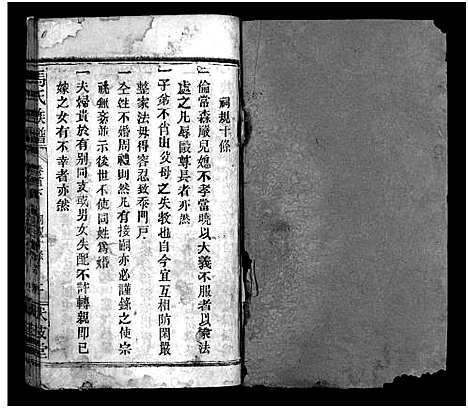 祠規十條
一倫當森嚴兒媳不孝當曉以大義不服者以家法
處之凡辱毆尊長者亦然
一子弟不肖由父母之失教也自今宜互相防閑嚴
整家法毋得容忍致忝門戶
一仝姓不婚周禮則然凡有接嗣亦必謹錄之使宗
祧無紊並示後世不使同姓爲婚
一夫婦貴於有別同支或男女失配不許轉親即已
嫁之女有不幸者亦然
馬氏族譜